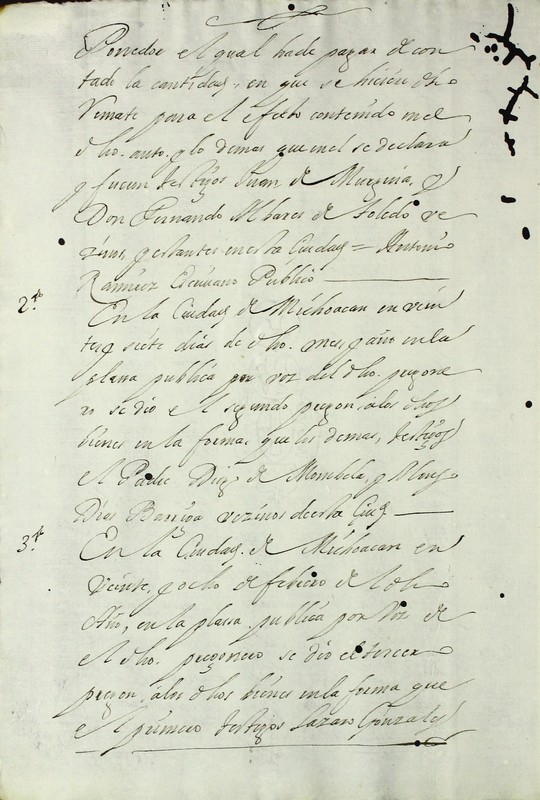 Poredor el qual hade pagar de con
tado la cantidad, en que se hiciere dho
Remate para el efecto contenido en el
dho. auto, y lo demas que en el se declara
y fueron testigos Juan de Murguia, y
Don Fernando Albares de Toledo ve
zinos, y estantes en esta Ciudad = Antonio
Ramirez Escrivano Publico
2º. En la Ciudad de Michoacan en vein
te y siete dias de dho. mes, y año en la
plaza publica por voz del dho. pregone
ro se dio el segundo pregon, a los dhos
bienes en la forma que los demas, testigos
el Padre de y Alonso
Dias Barriga vezinos de esta Ciud.
3º. En la Ciudad de Michoacan en
veinte, y ocho de febrero de el dho
Año, en la plaza publica por voz de
el dho. pregonero se dio el tercer
pregon, a los dhos bienes en la forma que
el primero testigos Lazaro Gonzales